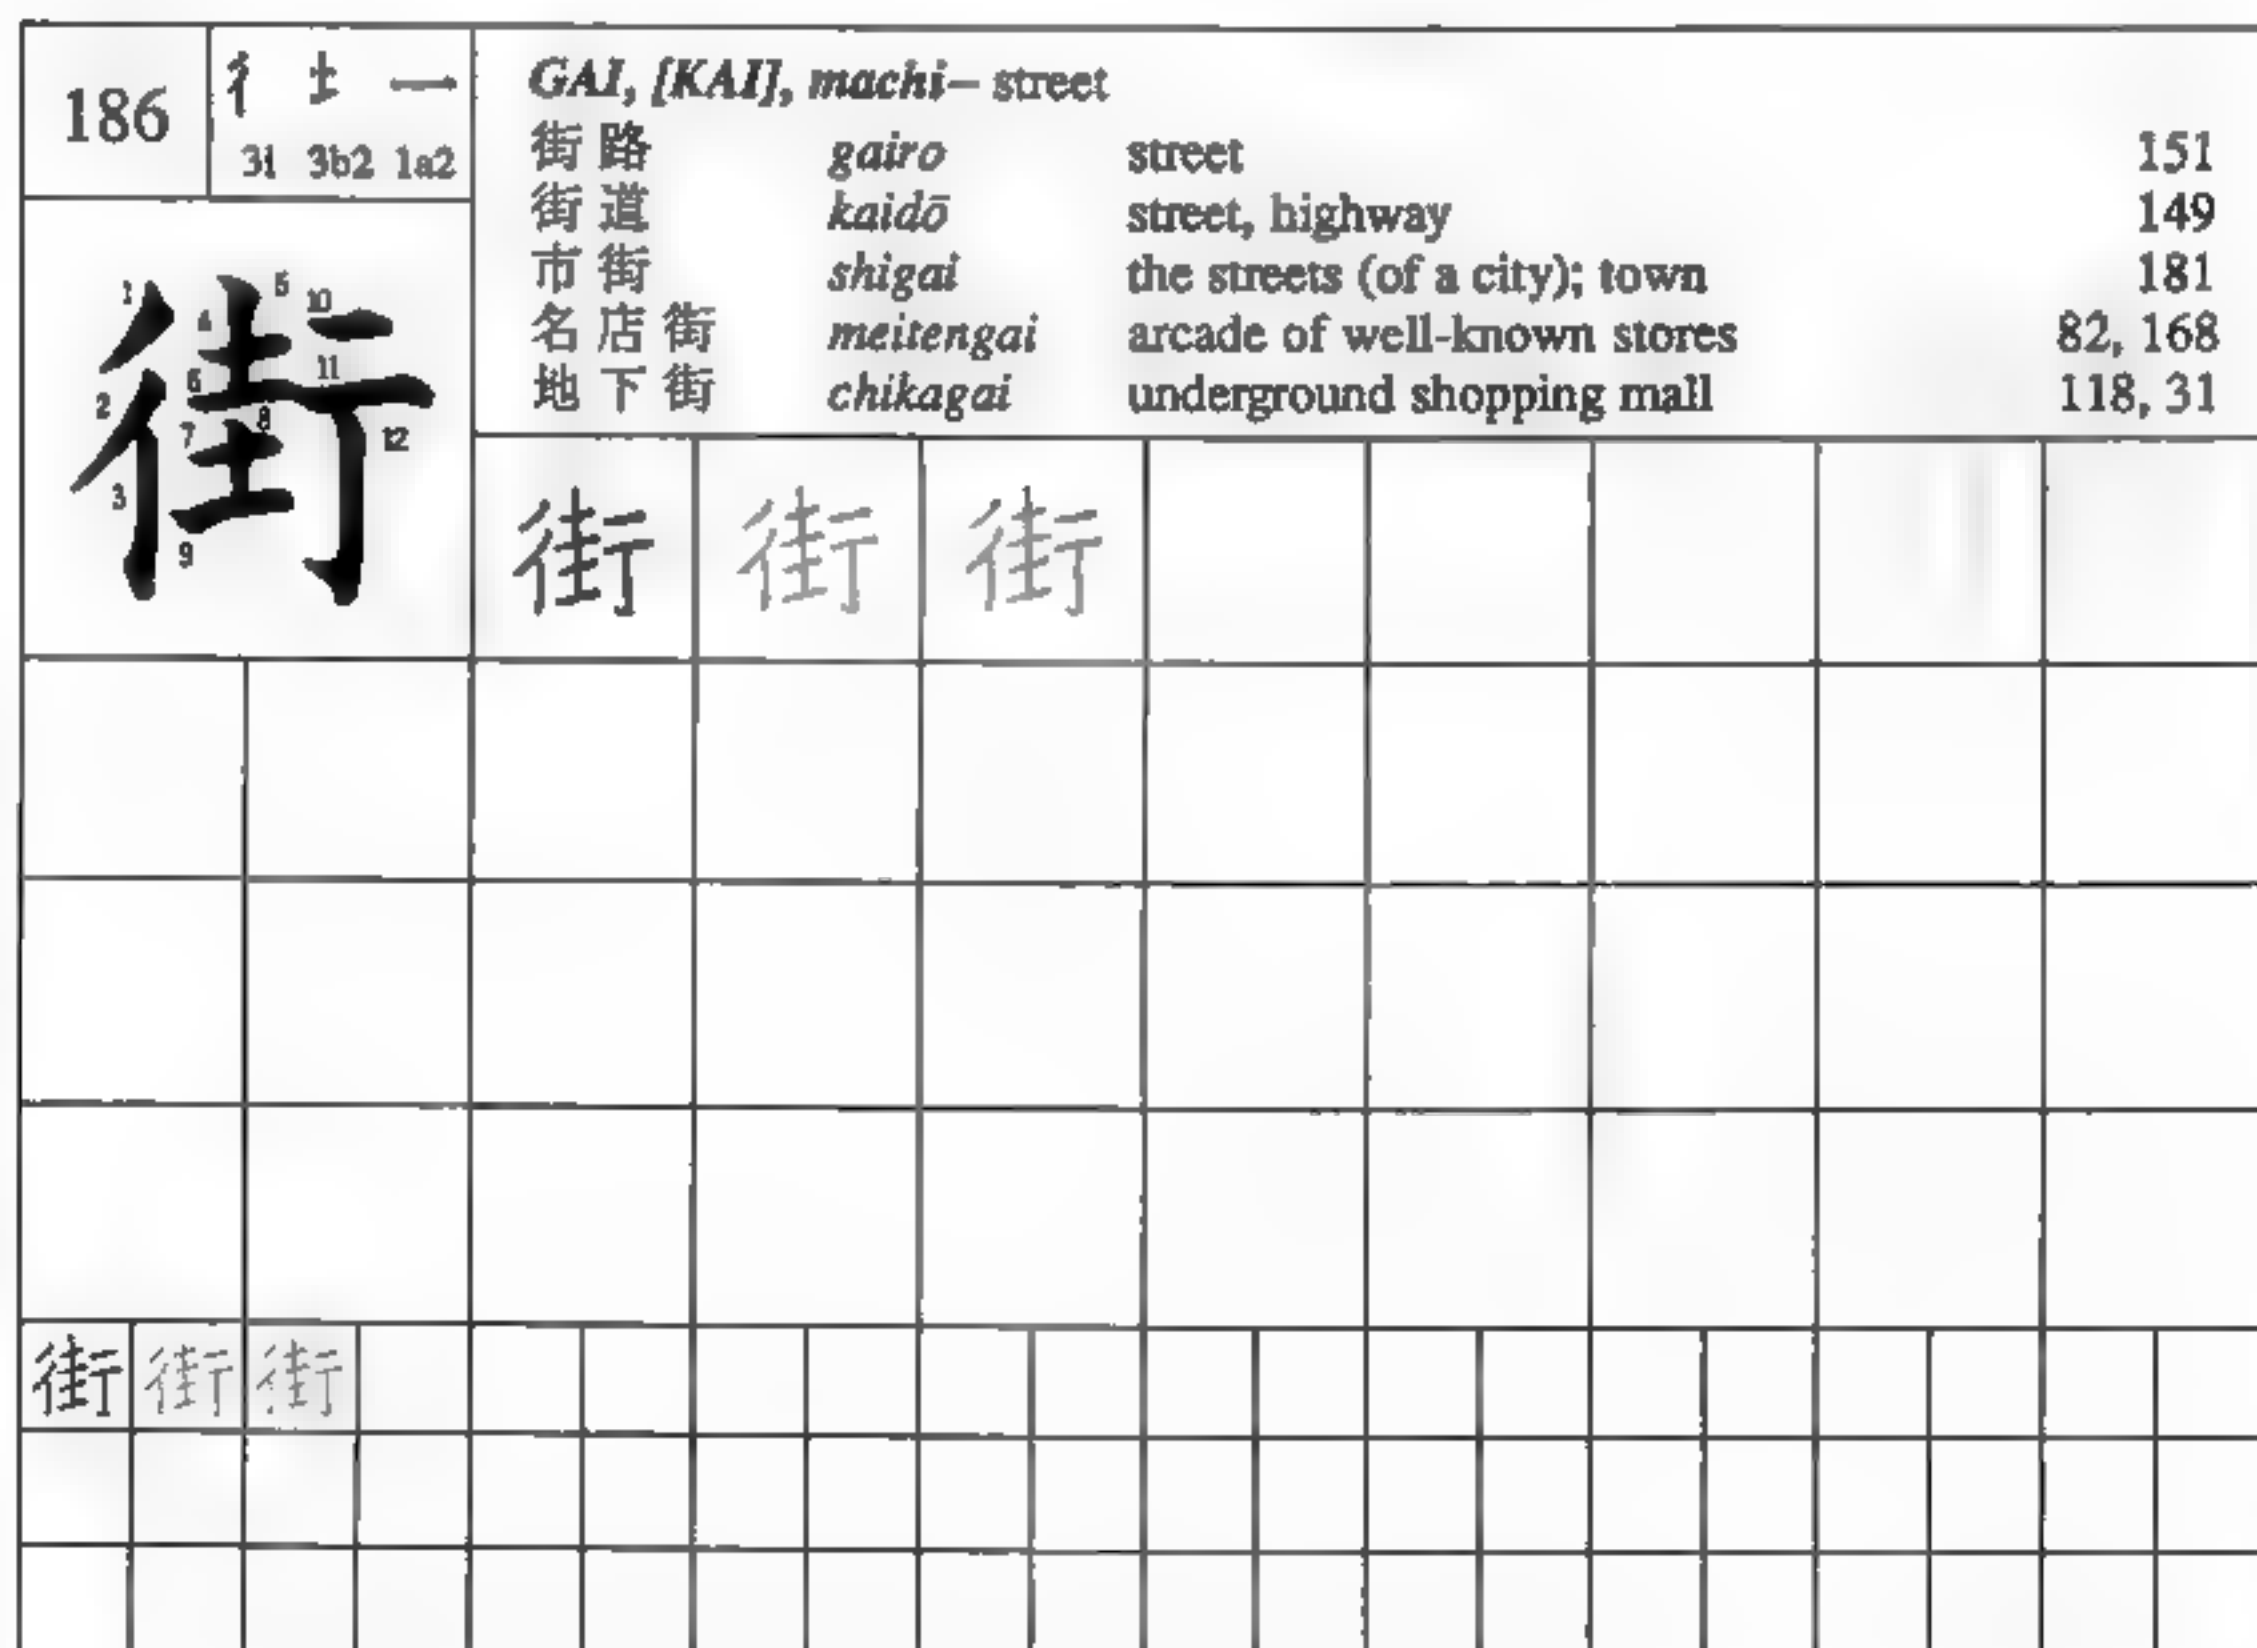 186
彳 土 一
3i 3b2 1a2
GAI, [KAI], machi– street
街路 gairo street 151
街道 kaidō street, highway 149
市街 shigai the streets (of a city); town 181
名店街 meitengai arcade of well-known stores 82, 168
地下街 chikagai underground shopping mall 118, 31
街
1 2 3 4 5 6 7 8 9 10 11 12
街 街 街
街 街 街